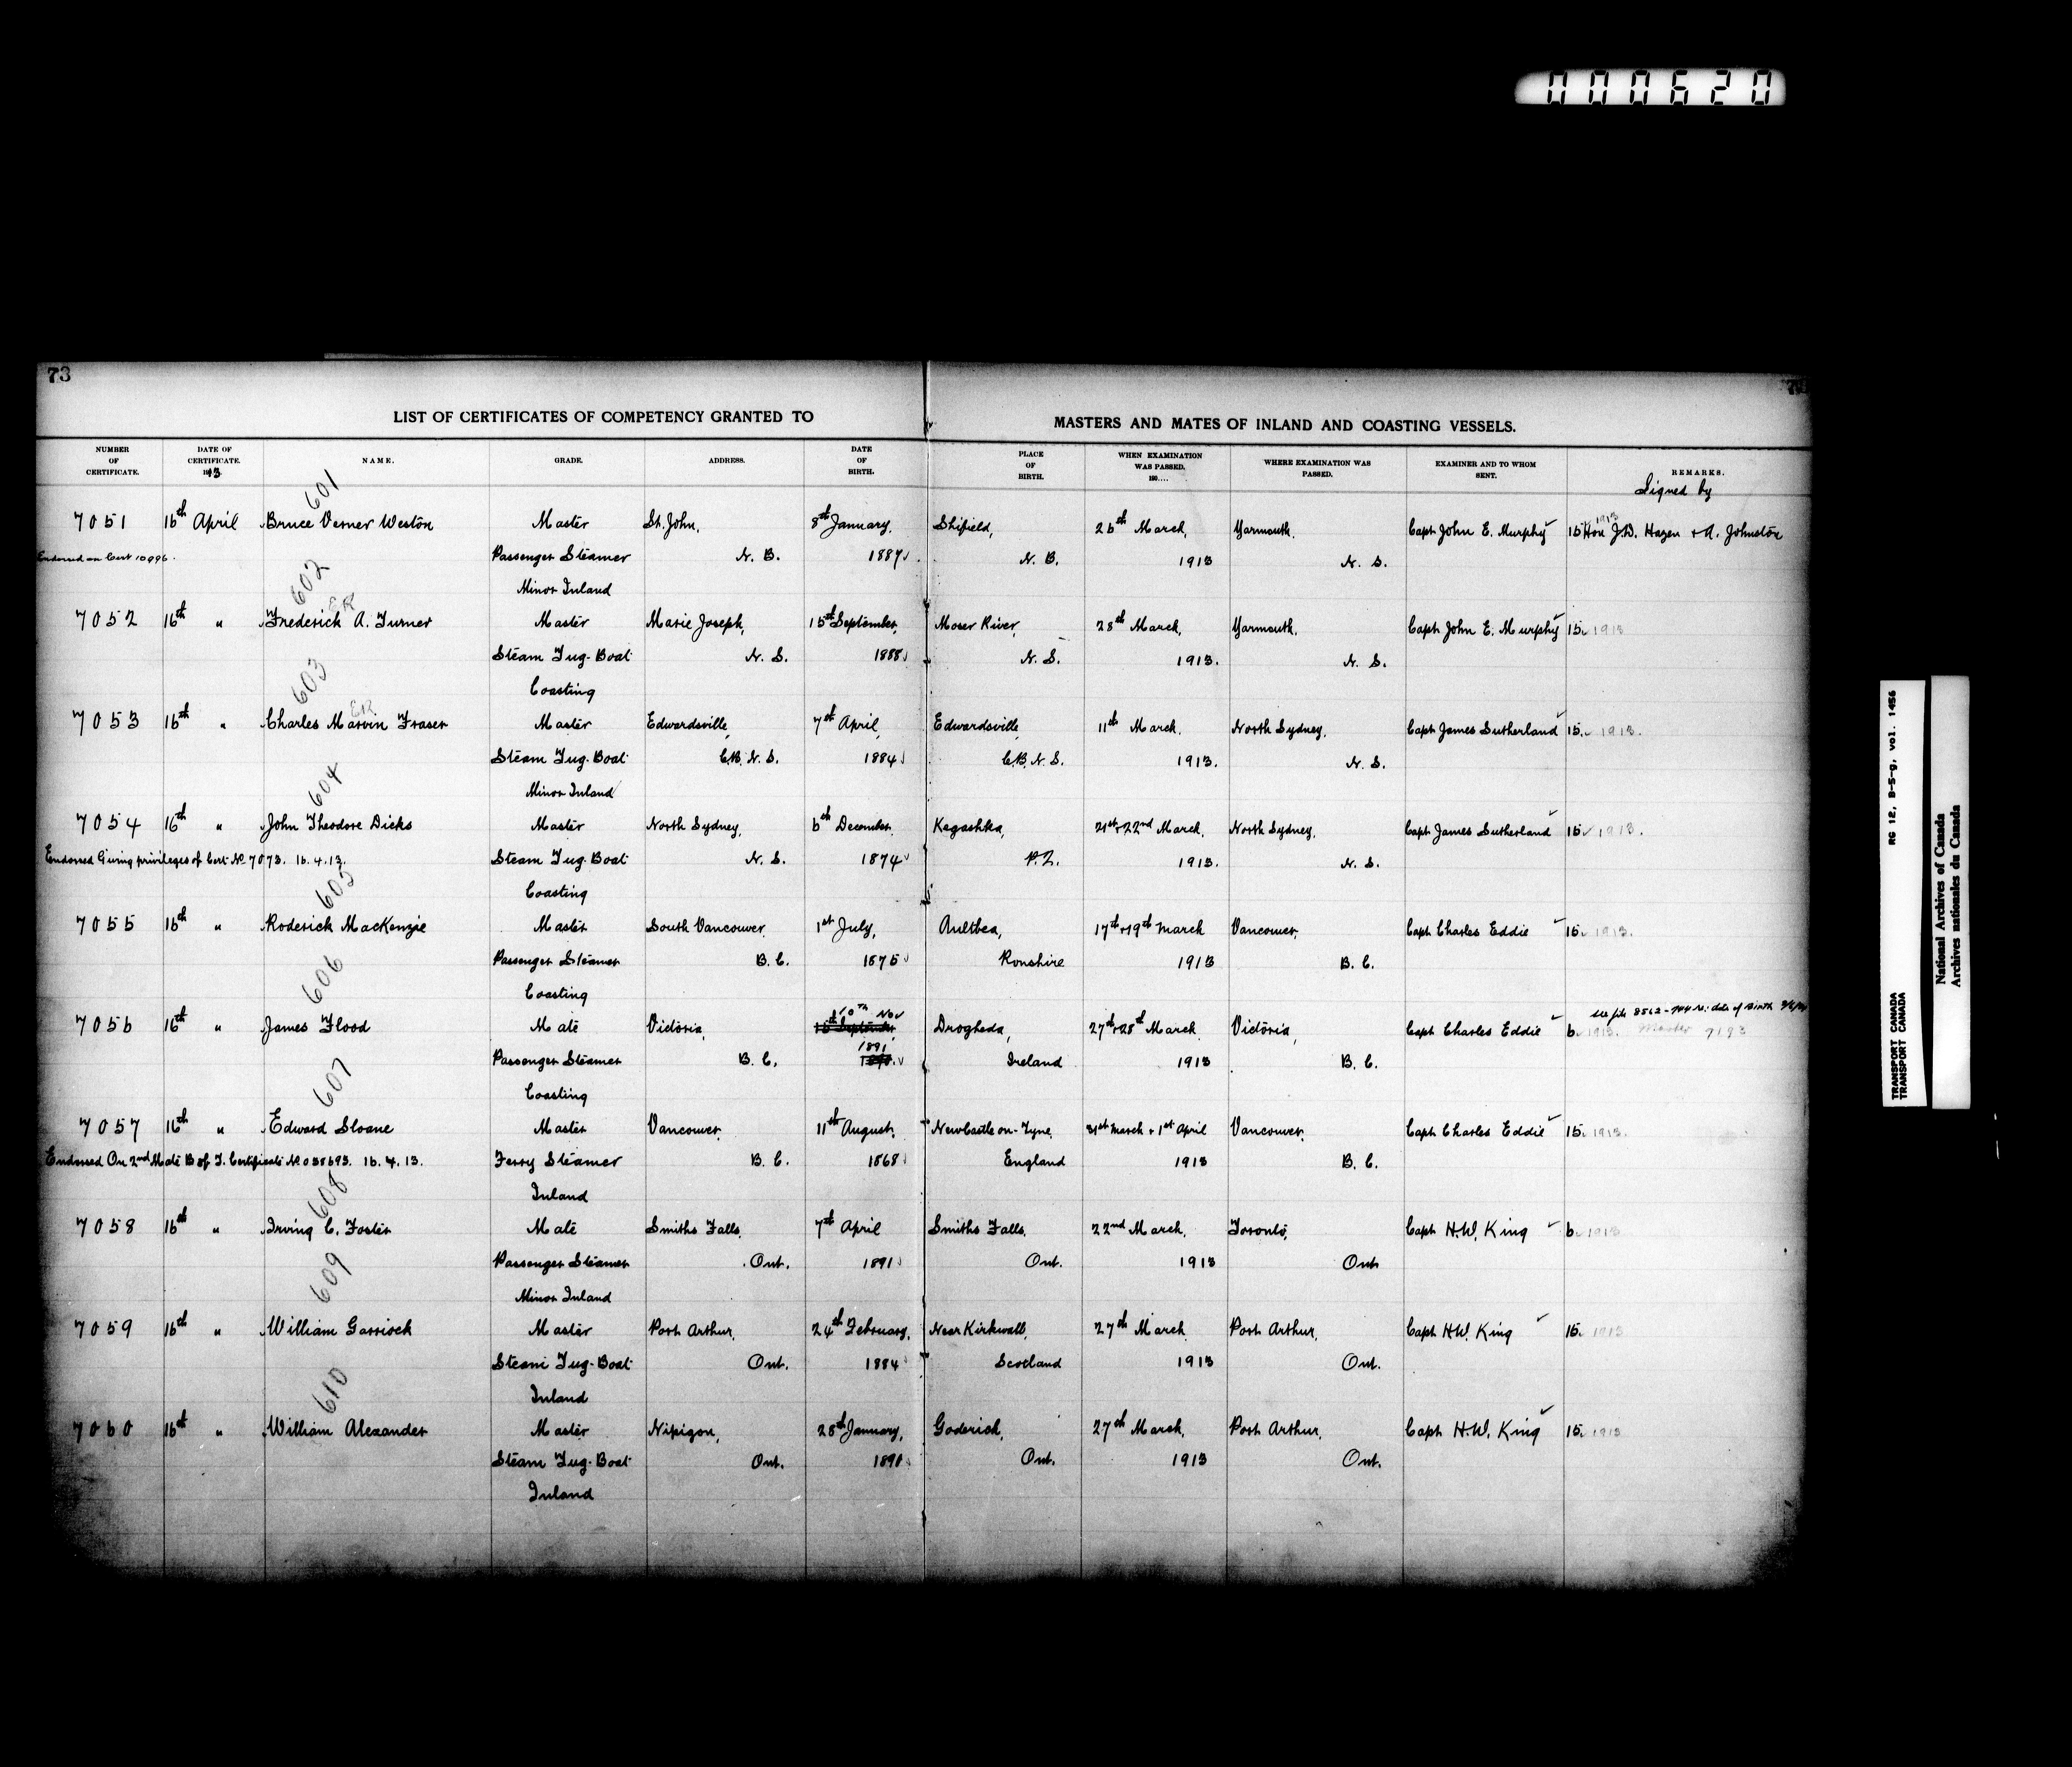 000620
73
LIST OF CERTIFICATES OF COMPETENCY GRANTED TO MASTERS AND MATES OF INLAND AND COASTING VESSELS.
NUMBER OF CERTIFICATE. DATE OF CERTIFICATE. 1913 NAME. GRADE. ADDRESS. DATE OF BIRTH. PLACE OF BIRTH. WHEN EXAMINATION WAS PASSED. 190.... WHERE EXAMINATION WAS PASSED. EXAMINER AND TO WHOM SENT. REMARKS.
Signed by
601
7051 16th April Bruce Verner Weston Master St. John, 8th January, Shifield, 26th March, Yarmouth, Capt John E. Murphy 15 1913 Hon J.D. Hazen + A. Johnston
Endorsed on Cert 10996. Passenger Steamer N. B. 1887 N. B. 1913 N. S.
Minor Inland
602
7052 16th " Frederick A. Turner Master Marie Joseph, 15th September, Moser River, 28th March, Yarmouth, Capt John E. Murphy 15. 1913
Steam Tug-Boat N. S. 1888 N. S. 1913. N. S.
Coasting
603
7053 16th " Charles Marvin Fraser Master Edwardsville, 7th April, Edwardsville, 11th March, North Sydney, Capt James Sutherland 15. 1913.
Steam Tug-Boat C.B. N. S. 1884 C.B. N. S. 1913. N. S.
Minor Inland
604
7054 16th " John Theodore Dicks Master North Sydney, 6th December, Kegashka, 21st+22nd March, North Sydney, Capt James Sutherland 15 1913.
Endorsed Giving privileges of Cert No 7073. 16.4.13. Steam Tug-Boat N. S. 1874 P.Q. 1913. N. S.
Coasting
605
7055 16th " Roderick MacKenzie Master South Vancouver, 1st July, Aultbea, 17th+19th March Vancouver, Capt Charles Eddie 15. 1913.
Passenger Steamer B. C. 1875 Ronshire 1913 B. C.
Coasting
606
10th Nov see file 8562-744 re: date of Birth
7056 16th " James Flood Mate Victoria, 16th September, Drogheda, 27th+28th March Victoria, Capt Charles Eddie 6. 1913. Master 7193
1891
Passenger Steamer B. C. Ireland 1913 B. C.
Coasting
607
7057 16th " Edward Sloane Master Vancouver, 11th August, Newcastle on-Tyne, 31st March + 1st April Vancouver, Capt Charles Eddie 15. 1913.
Endorsed On 2nd Mate B of T. Certificate No 038693. 16.4.13. Ferry Steamer B. C. 1868 England 1913 B. C.
Inland
608
7058 16th " Irving C. Foster Mate Smiths Falls, 7th April Smiths Falls, 22nd March, Toronto, Capt H.W. King 6. 1913
Passenger Steamer Ont. 1891 Ont. 1913 Ont
Minor Inland
609
7059 16th " William Garriock Master Port Arthur, 24th February, Near Kirkwall, 27th March Port Arthur, Capt H.W. King 15. 1913
Steam Tug-Boat Ont. 1884 Scotland 1913 Ont.
Inland
610
7060 16th " William Alexander Master Nipigon, 28th January, Goderich, 27th March, Port Arthur, Capt H.W. King 15. 1913
Steam Tug-Boat Ont. 1890 Ont. 1913 Ont.
Inland
TRANSPORT CANADA RG 12, B-5-g, vol. 1456
TRANSPORT CANADA
National Archives of Canada
Archives nationales du Canada